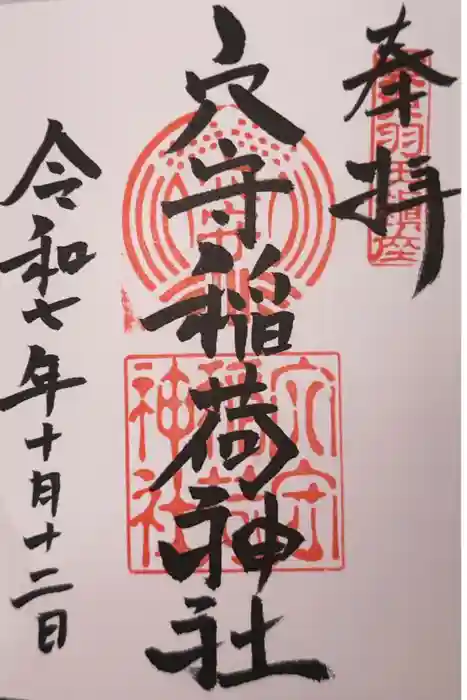 奉拝
東京羽田鎮座
穴守稲荷神社
穴守稲荷神社
令和七年十月十二日